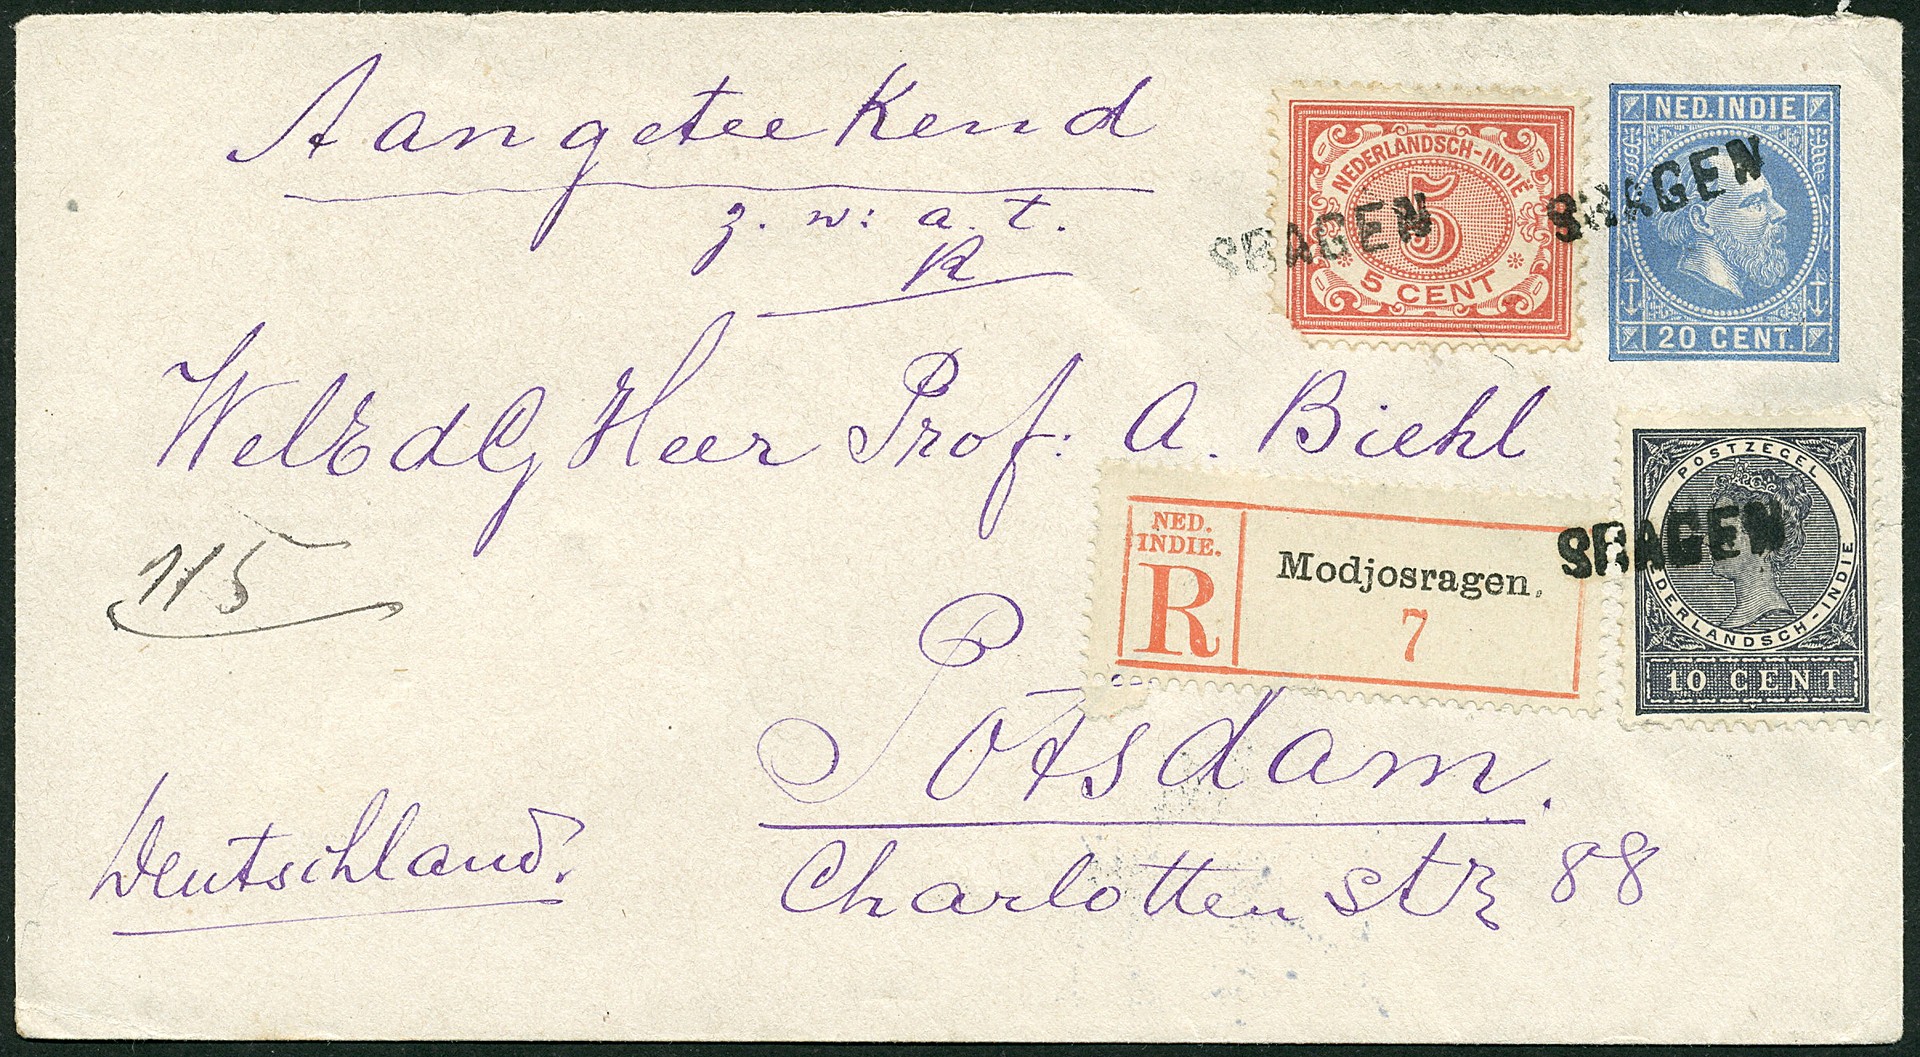 Aangeteekend
z. w: a. t.
R
WelEdG Heer Prof: A. Biehl
115
Potsdam.
Charlottenstr 88
Deutschland.
NEDERLANDSCH-INDIË
5
5 CENT
SRAGEN
NED. INDIE
20 CENT.
SRAGEN
NED.
INDIE.
R
Modjosragen.
7
POSTZEGEL
NEDERLANDSCH-INDIE
10 CENT
SRAGEN